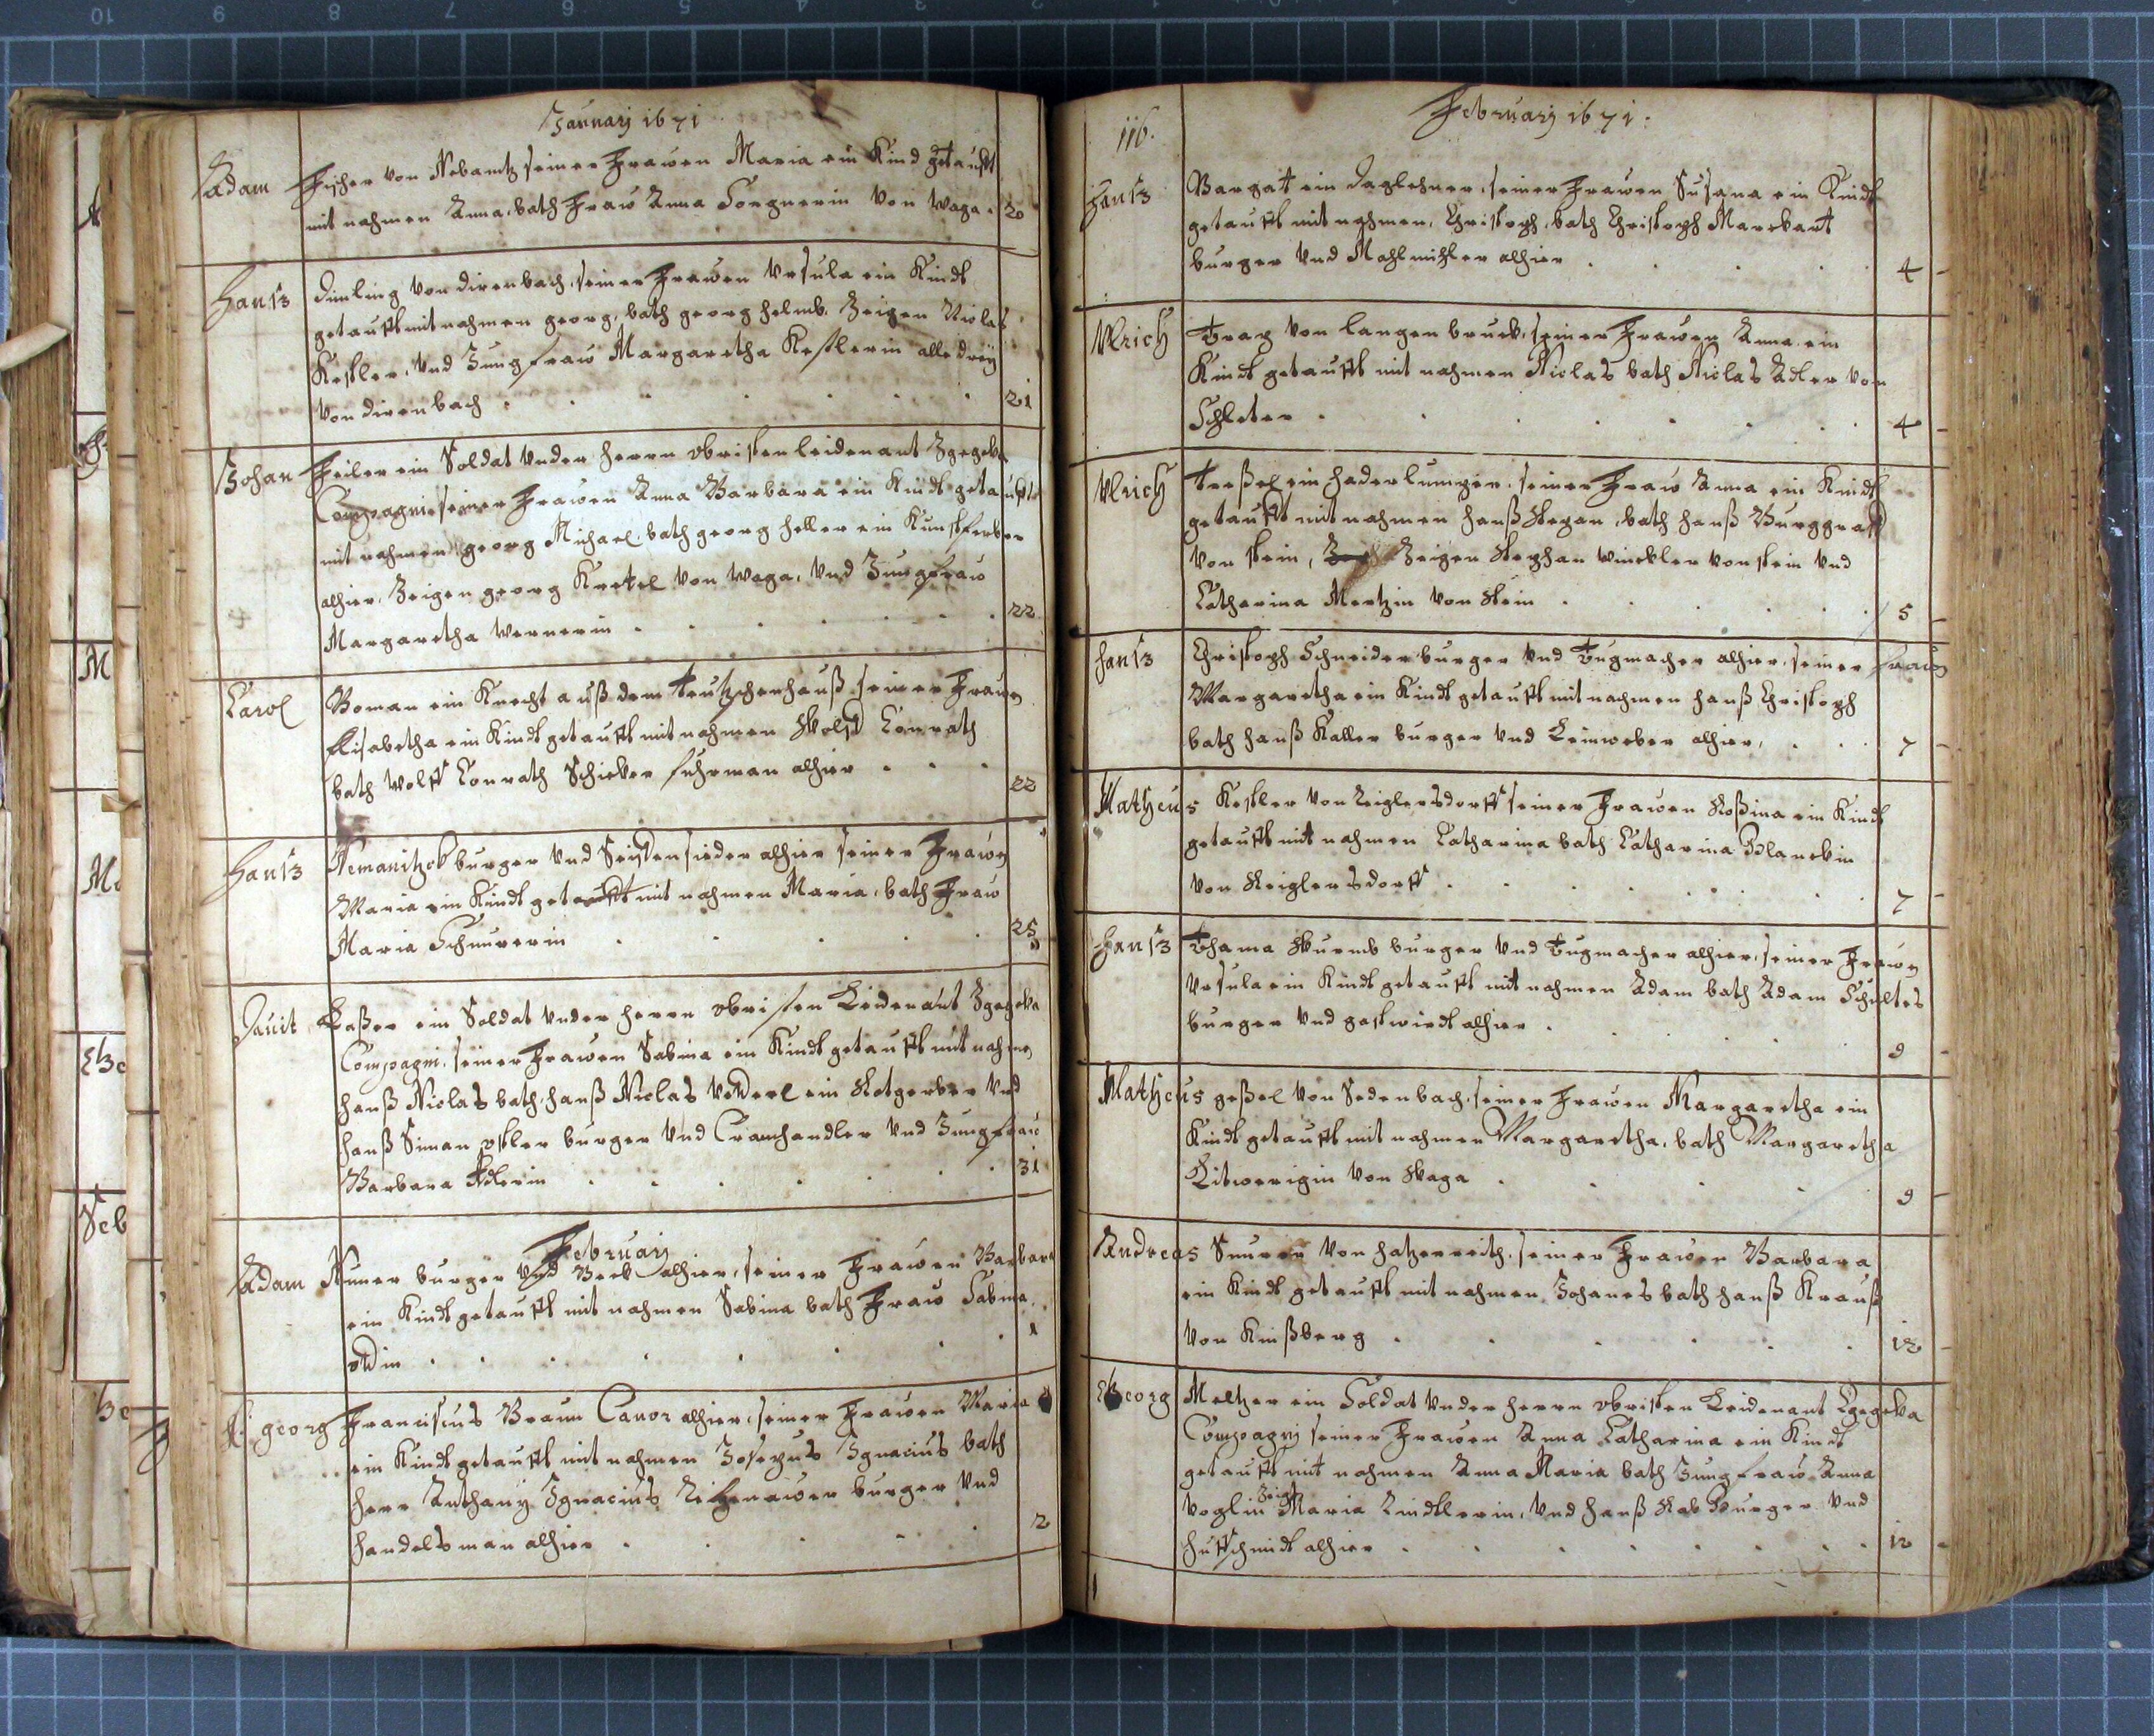 Januarij 1671
Adam Fischer von Nebanitz seiner Frawen Maria ein Kind getaufft
mit nahmen Anna, bath Fraw Anna Sorgnerin von Waga. 20
Hanß Dimling von direnbach, seiner Frawen Vrsula ein Kindt
getaufft mit nahmen georg, bath georg helmb, Zeigen Niclas
Kestler, Vnd Jungfraw Margaretha Kestlerin alle dreÿ
Von direnbach 21
Johan Feiler ein Soldat Vnder herrn obristen leidenant
Compagni seiner Frawen Anna Barbara ein Kindt getaufft
mit nahmen georg Michael, bath georg heller ein Kunstferber
alhier, Zeigen georg Krekel Von Waga, Vnd Jungfraw
Margaretha Wernerin 22
Carol Boman ein Knecht auß dem teutschenhauß seiner Frawen
Elisabetha ein Kindt getaufft mit nahmen Wolff Conrath
bath Wolff Conrath Schicker fuhrman alhier 22
Hanß Nemanitzok burger Vnd Seiffensieder alhier seiner Frawen
Maria ein Kindt getaufft mit nahmen Maria, bath Fraw
Maria Schnurerin 25
Dauit ein Soldat Vnder herrn obristen Leidenant
Compagni, seiner Frawen Sabina ein Kindt getaufft mit nahmen
hanß Niclas bath hanß Niclas ein Rotgerber Vnd
hanß Siman burger Vnd Cramhandler Vnd Jungfraw
Barbara Adlerin 31
Februarij
Adam burger Vnd Beck alhier, seiner Frawen Barbara
ein Kindt getaufft mit nahmen Sabina bath Fraw Sabina
1
georg Franciscus Braun Canor alhier, seiner Frawen Maria
ein Kindt getaufft mit nahmen Josepus Ignacius bath
herr Anthanÿ Ignacius burger Vnd
handelsman alhier 2
116.
Februarij 1671.
Hanß ein daglehner, seiner Frawen Susana ein Kindt
getaufft mit nahmen, Christoph, bath Christoph Marckart
burger Vnd Mahlmihler alhier 4
Vlrich Von langenbruck, seiner Frawen Anna ein
Kindt getaufft mit nahmen Niclas bath Niclas Adler Von
Schleter 4
Vlrich treßel ein haderlumper, seiner Fraw Anna ein Kindt
getaufft mit nahmen hanß, bath hanß Burggraff
Von stein, Zeigen Stephan Winckler Von stein Vnd
Catharina Mertzin Von Stein 5
Hanß Christoph Schneider burger Vnd Tugmacher alhier, seiner Frawen
Margaretha ein Kindt getaufft mit nachmen hanß Christoph
bath hanß Kaller burger Vnd Leinweber alhier, 7
Matheus Kestler Von seiner Frawen Roßina ein Kindt
getaufft mit nahmen Catharina bath Catharina Planckin
Von 7
Hanß Thama Wurmb burger Vnd Tugmacher alhier, seiner Frawen
Vrsula ein Kindt getaufft mit nahmen Adam bath Adam Schultes
burger Vnd gastwirdt alhier 9
Matheus geßel Von Sedenbach, seiner Frawen Margaretha ein
Kindt getaufft mit nahmen Margaretha, bath Margaretha
Von Waga 9
Andreas Von hatzenreith, seiner Frawen Barbara
ein Kindt getaufft mit nahmen Johanes bath hanß Krauß
Von Kinßberg 12
Georg Meltzer ein Soldat Vnder herrn obristen Leidenant
Compagnj seiner Frawen Anna Catharina ein Kindt
getaufft mit nahmen Anna Maria bath Jungfraw Anna
Voglin Zeigen Maria Lindtlerin, Vnd hanß Burger Vnd
huffschmidt alhier 12